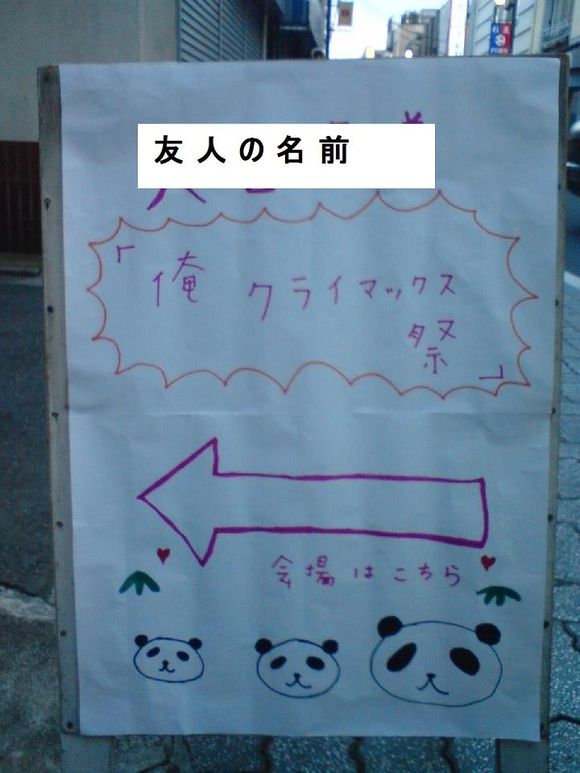 友人の名前
「俺 クライマックス
祭」
会場はこちら